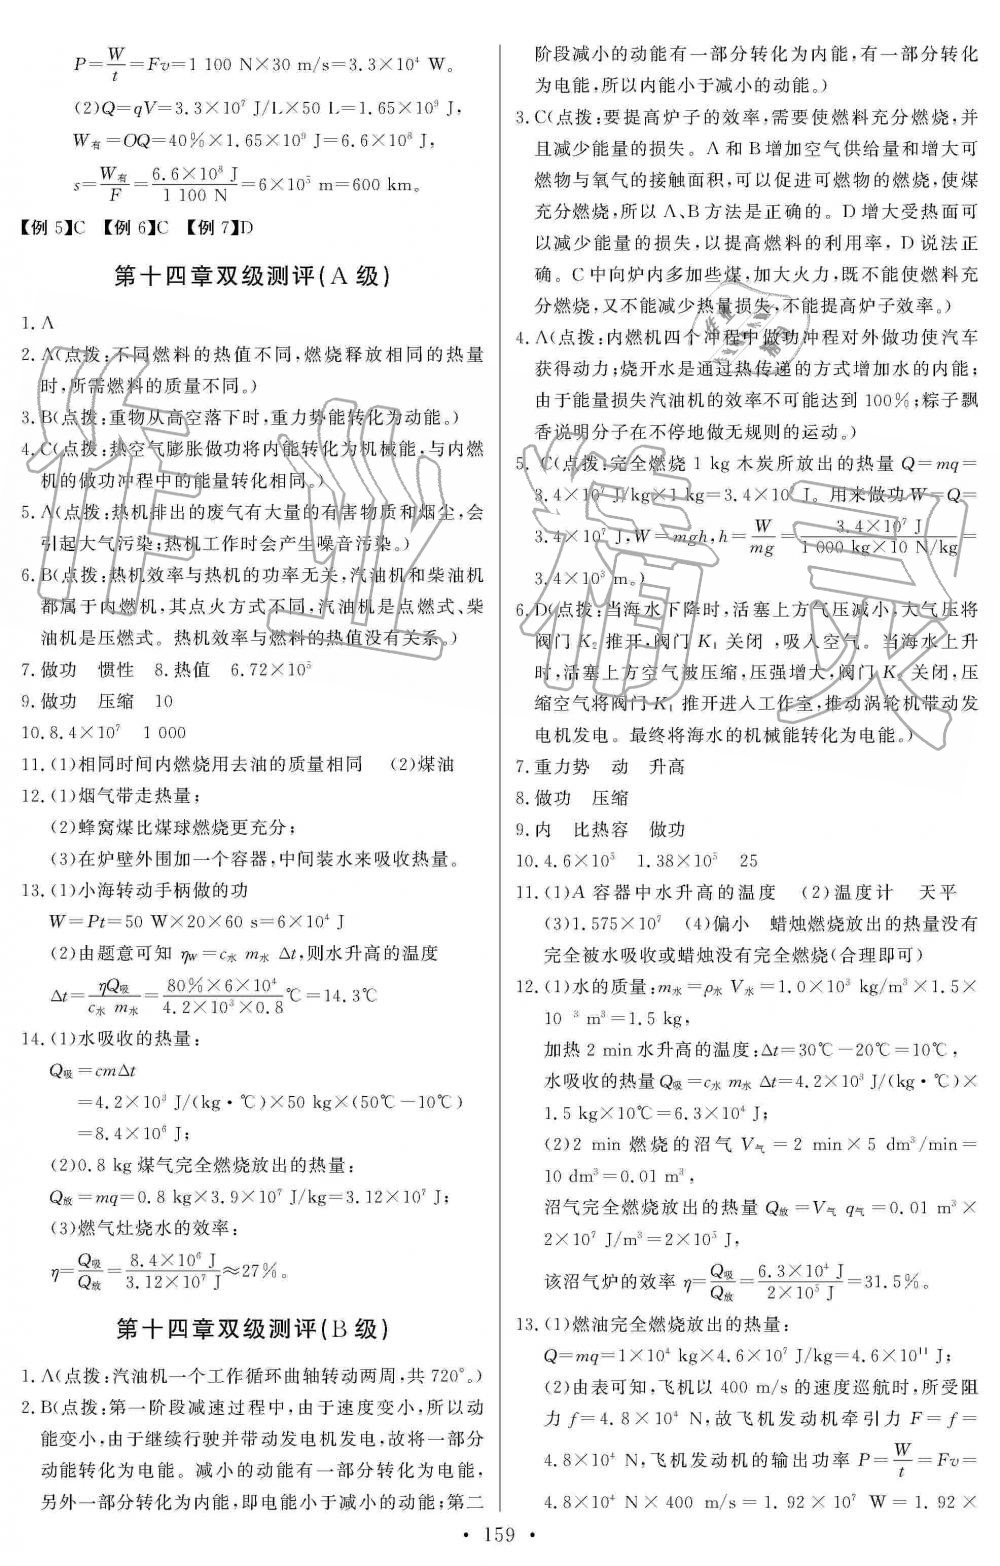 P=W/t=Fv=1 100 N×30 m/s=3.3×10⁴ W。
(2)Q=qV=3.3×10⁷ J/L×50 L=1.65×10⁹ J,
W有=OQ=40%×1.65×10⁹ J=6.6×10⁸ J,
s=W有/F=6.6×10⁸ J/1 100 N=6×10⁵ m=600 km。
【例5】C 【例6】C 【例7】D
第十四章双级测评(A级)
1. A
2. A(点拨:不同燃料的热值不同,燃烧释放相同的热量
时,所需燃料的质量不同。)
3. B(点拨:重物从高空落下时,重力势能转化为动能。)
4. C(点拨:热空气膨胀做功将内能转化为机械能,与内燃
机的做功冲程中的能量转化相同。)
5. A(点拨:热机排出的废气有大量的有害物质和烟尘,会
引起大气污染;热机工作时会产生噪音污染。)
6. B(点拨:热机效率与热机的功率无关,汽油机和柴油机
都属于内燃机,其点火方式不同,汽油机是点燃式、柴
油机是压燃式。热机效率与燃料的热值没有关系。)
7. 做功 惯性 8. 热值 6.72×10⁵
9. 做功 压缩 10
10. 8.4×10⁷ 1 000
11. (1)相同时间内燃烧用去油的质量相同 (2)煤油
12. (1)烟气带走热量;
(2)蜂窝煤比煤球燃烧更充分;
(3)在炉壁外围加一个容器,中间装水来吸收热量。
13. (1)小海转动手柄做的功
W=Pt=50 W×20×60 s=6×10⁴ J
(2)由题意可知 ηw=c水 m水 Δt,则水升高的温度
Δt=ηQ吸/c水 m水=80%×6×10⁴/4.2×10³×0.8℃=14.3℃
14. (1)水吸收的热量:
Q吸=cmΔt
=4.2×10³ J/(kg·℃)×50 kg×(50℃-10℃)
=8.4×10⁶ J;
(2)0.8 kg煤气完全燃烧放出的热量:
Q放=mq=0.8 kg×3.9×10⁷ J/kg=3.12×10⁷ J;
(3)燃气灶烧水的效率:
η=Q吸/Q放=8.4×10⁶ J/3.12×10⁷ J≈27%。
第十四章双级测评(B级)
1. A(点拨:汽油机一个工作循环曲轴转动两周,共720°。)
2. B(点拨:第一阶段减速过程中,由于速度变小,所以动
能变小,由于继续行驶并带动发电机发电,故将一部分
动能转化为电能。减小的动能有一部分转化为电能,
另外一部分转化为内能,即电能小于减小的动能;第二
阶段减小的动能有一部分转化为内能,有一部分转化
为电能,所以内能小于减小的动能。)
3. C(点拨:要提高炉子的效率,需要使燃料充分燃烧,并
且减少能量的损失。A和B增加空气供给量和增大可
燃物与氧气的接触面积,可以促进可燃物的燃烧,使煤
充分燃烧,所以A、B方法是正确的。D增大受热面可
以减少能量的损失,以提高燃料的利用率,D说法正
确。C中向炉内多加些煤,加大火力,既不能使燃料充
分燃烧,又不能减少热量损失,不能提高炉子效率。)
4. A(点拨:内燃机四个冲程中做功冲程对外做功使汽车
获得动力;烧开水是通过热传递的方式增加水的内能;
由于能量损失汽油机的效率不可能达到100%;粽子飘
香说明分子在不停地做无规则的运动。)
5. C(点拨:完全燃烧1 kg木炭所放出的热量Q=mq=
3.4×10⁷ J/kg×1 kg=3.4×10⁷ J。用来做功W=Q=
3.4×10⁷ J,W=mgh,h=W/mg=3.4×10⁷ J/1 000 kg×10 N/kg=
3.4×10³ m。)
6. D(点拨:当海水下降时,活塞上方气压减小,大气压将
阀门K₂推开,阀门K₁关闭,吸入空气。当海水上升
时,活塞上方空气被压缩,压强增大,阀门K₂关闭,压
缩空气将阀门K₁推开进入工作室,推动涡轮机带动发
电机发电。最终将海水的机械能转化为电能。)
7. 重力势 动 升高
8. 做功 压缩
9. 内 比热容 做功
10. 4.6×10⁵ 1.38×10⁵ 25
11. (1)A容器中水升高的温度 (2)温度计 天平
(3)1.575×10⁷ (4)偏小 蜡烛燃烧放出的热量没有
完全被水吸收或蜡烛没有完全燃烧(合理即可)
12. (1)水的质量:m水=ρ水 V水=1.0×10³ kg/m³×1.5×
10 ³ m³=1.5 kg,
加热2 min水升高的温度:Δt=30℃-20℃=10℃,
水吸收的热量Q吸=c水 m水 Δt=4.2×10³ J/(kg·℃)×
1.5 kg×10℃=6.3×10⁴ J;
(2)2 min燃烧的沼气V气=2 min×5 dm³/min=
10 dm³=0.01 m³,
沼气完全燃烧放出的热量Q放=V气 q气=0.01 m³×
2×10⁷ J/m³=2×10⁵ J,
该沼气炉的效率η=Q吸/Q放=6.3×10⁴ J/2×10⁵ J=31.5%。
13. (1)燃油完全燃烧放出的热量:
Q=mq=1×10⁴ kg×4.6×10⁷ J/kg=4.6×10¹¹ J;
(2)由表可知,飞机以400 m/s的速度巡航时,所受阻
力f=4.8×10⁴ N,故飞机发动机牵引力F=f=
4.8×10⁴ N,飞机发动机的输出功率P=W/t=Fv=
4.8×10⁴ N×400 m/s=1.92×10⁷ W=1.92×
·159·
作业精灵